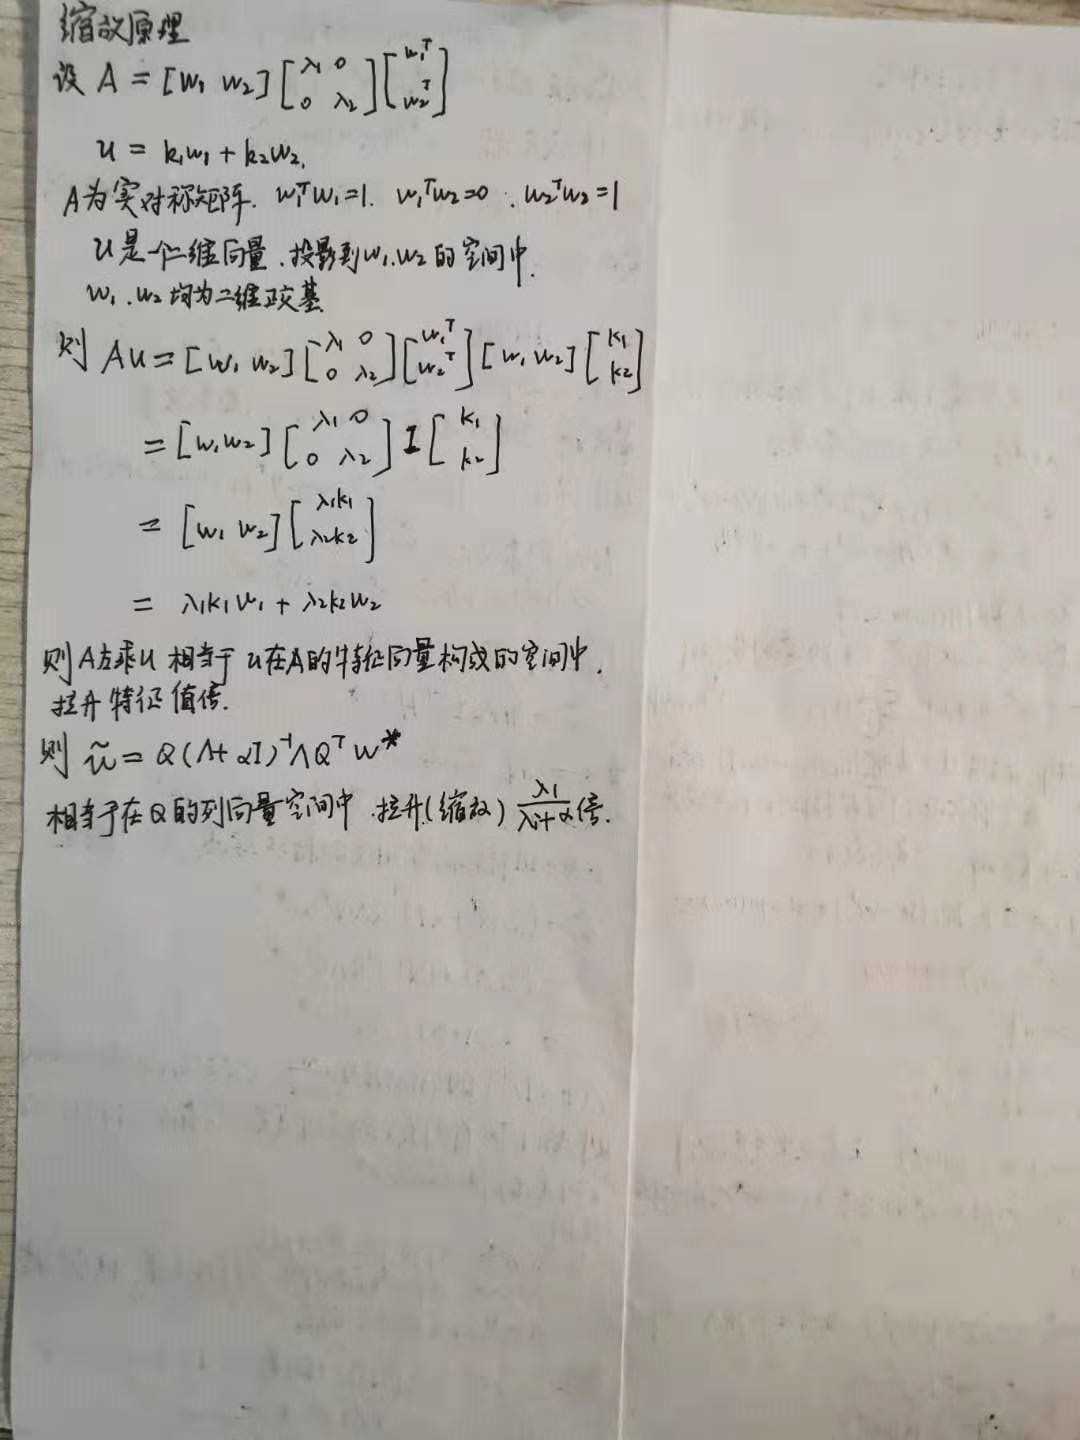 缩放原理
设 A = [w₁ w₂] [λ₁ 0; 0 λ₂] [w₁ᵀ; w₂ᵀ]
u = k₁w₁ + k₂w₂.
A为实对称矩阵. w₁ᵀw₁=1. w₁ᵀw₂=0. w₂ᵀw₂=1
u是一个二维向量.投影到w₁.w₂的空间中.
w₁.w₂均为二维正交基
则 Au = [w₁ w₂] [λ₁ 0; 0 λ₂] [w₁ᵀ; w₂ᵀ] [w₁ w₂] [k₁; k₂]
= [w₁ w₂] [λ₁ 0; 0 λ₂] I [k₁; k₂]
= [w₁ w₂] [λ₁k₁; λ₂k₂]
= λ₁k₁w₁ + λ₂k₂w₂
则A左乘u 相当于 u在A的特征向量构成的空间中.
拉升特征值倍.
则 w̃ = Q(Λ+αI)⁻¹ΛQᵀw*
相当于在Q的列向量空间中.拉升(缩放) λi/(λi+α)倍.